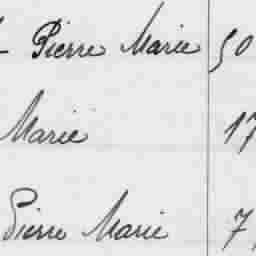 Pierre Marie 50
Marie 17
Pierre Marie 7